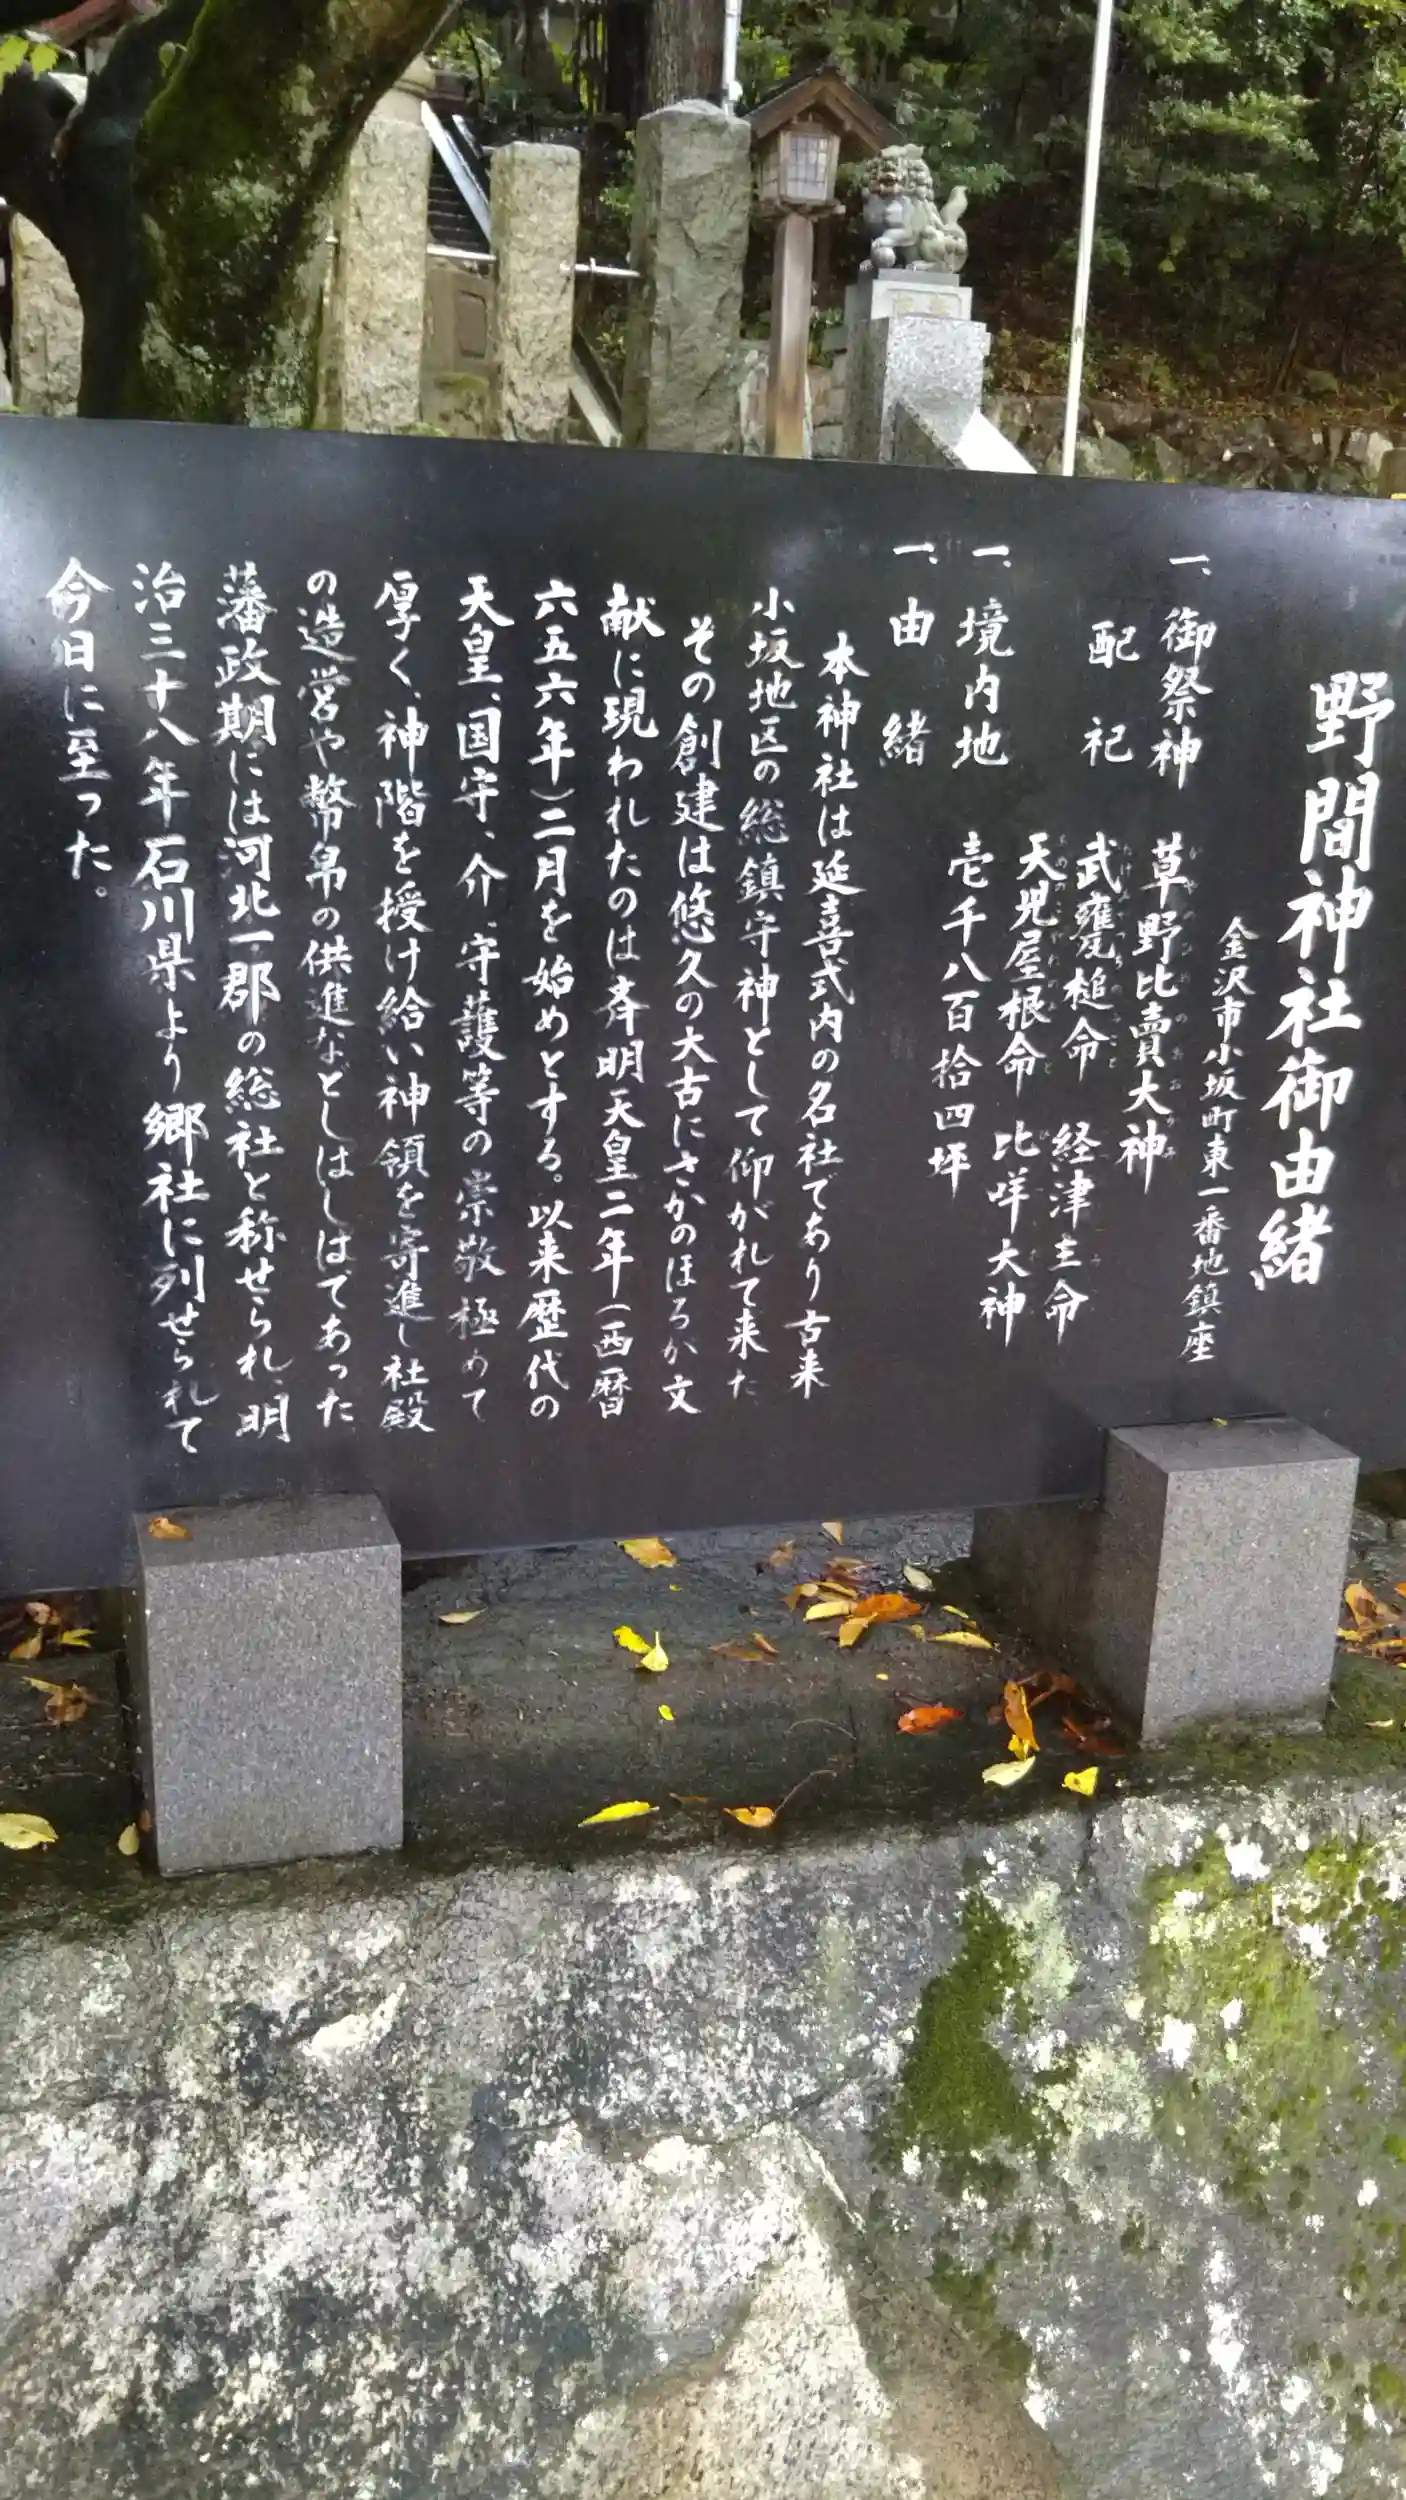 野間神社御由緒
金沢市小坂町東一番地鎮座
一、御祭神 草野比賣大神
配祀 武甕槌命 経津主命
天児屋根命 比咩大神
一、境内地 壱千八百拾四坪
一、由緒
本神社は延喜式内の名社であり古来
小坂地区の総鎮守神として仰がれて来た
その創建は悠久の大古にさかのぼるが文
献に現われたのは斉明天皇二年(西暦
六五六年)二月を始めとする。以来歴代の
天皇、国守、介、守護等の崇敬極めて
厚く、神階を授け給い神領を寄進し社殿
の造営や幣帛の供進などしばしばであった
藩政期には河北一郡の総社と称せられ、明
治三十八年石川県より郷社に列せられて
今日に至った。